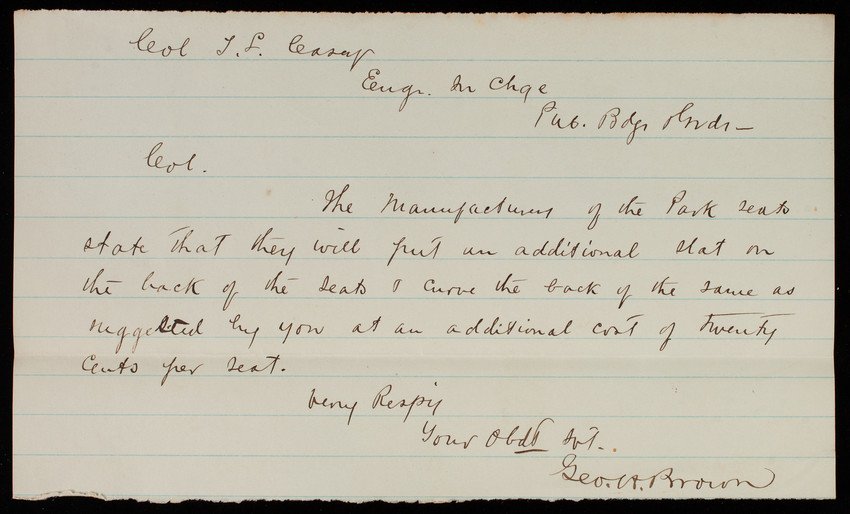 Col T. L. Casey
Engr. In Chge
Pub. Bdgs & Grnds—
Col.
The Manufacturers of the Park seats
state that they will put an additional slat on
the back of the seats & curve the back of the same as
suggested by you at an additional cost of twenty
cents per seat.
Very Respy
Your Obdt Svt.
Geo. H. Brown